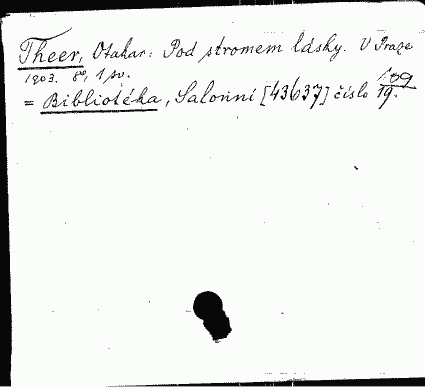 Theer, Otakar: Pod stromem lásky. V Praze
1903. 8°, 1 sv.
= Bibliotéka, Salonní [43637] číslo 19.